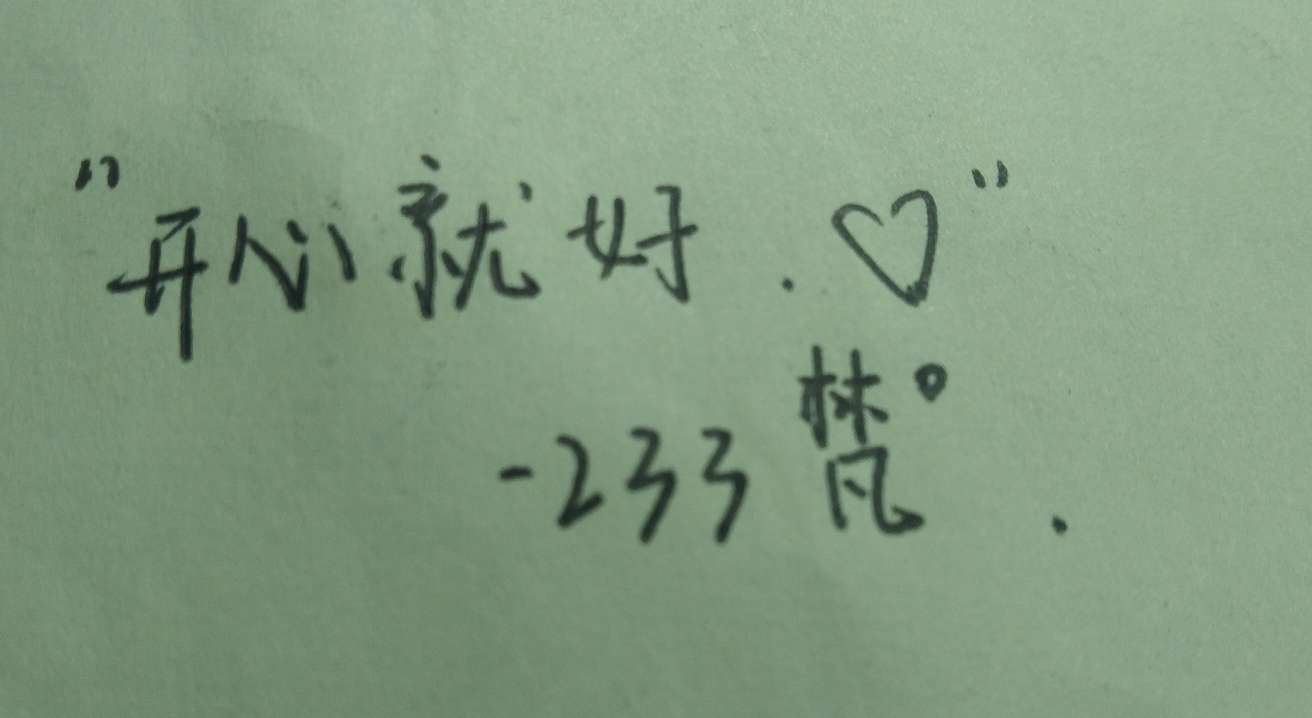 "开心就好.♡"
-233梵°.